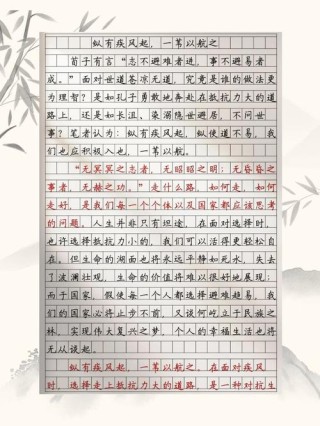 纵有疾风起，一苇以航之
苟子有言“志不避难者进，事不避易者
成。”面对世道苍凉无道，究竟是谁的做法更
为理智？是如孔子勇敢地奔赴在抵抗力大的道
路上，还是如长沮、桀溺隐世避居，不问世
事？笔者认为：纵有疾风起，纵使道不易，我
们也应积极入也，一苇以航。
“无冥冥之志者，无昭昭之明；无昏昏之
事者，无赫之功。”走什么路，如何走，如何
走好，是我们每一个个体以及国家都应该思考
的问题。人生并非只有坦途，在面对选择时，
也许选择抵抗力小的，我们可以活得更轻松自
在，但生命的湖面也将永远平静如死水，失去
了波澜壮观，生命的价值将难以很好地展现；
而于国家，假使每一个人都选择避难趋易，我
们的国家必将止步不前，又谈何屹立于民族之
林，实现伟大复兴之梦，个人的幸福生活也将
无从谈起。
纵有疾风起，一苇以航之，在面对疾风
时，选择走上抵抗力大的道路，是一种对抗生